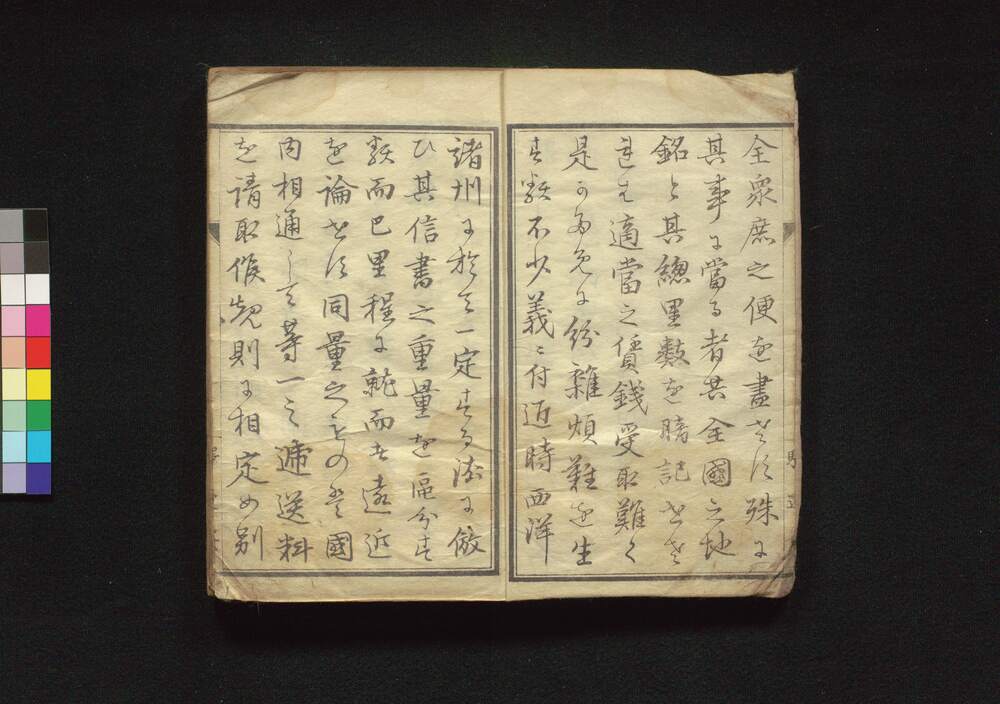 全衆庶之便を盡さす殊に
其事に當る者其全國之地
銘と其總里數を暗記せさ
れは適當之價錢受取難く
是か為免に紛雜煩難を生
す類不少義ニ付近時西洋
諸州に於て一定する法に倣
ひ其信書之重量を區分す
類而已里程に就而は遠近
を論せす同量之もの者國
内相通して等一之遞送料
を請取候規則に相定め別